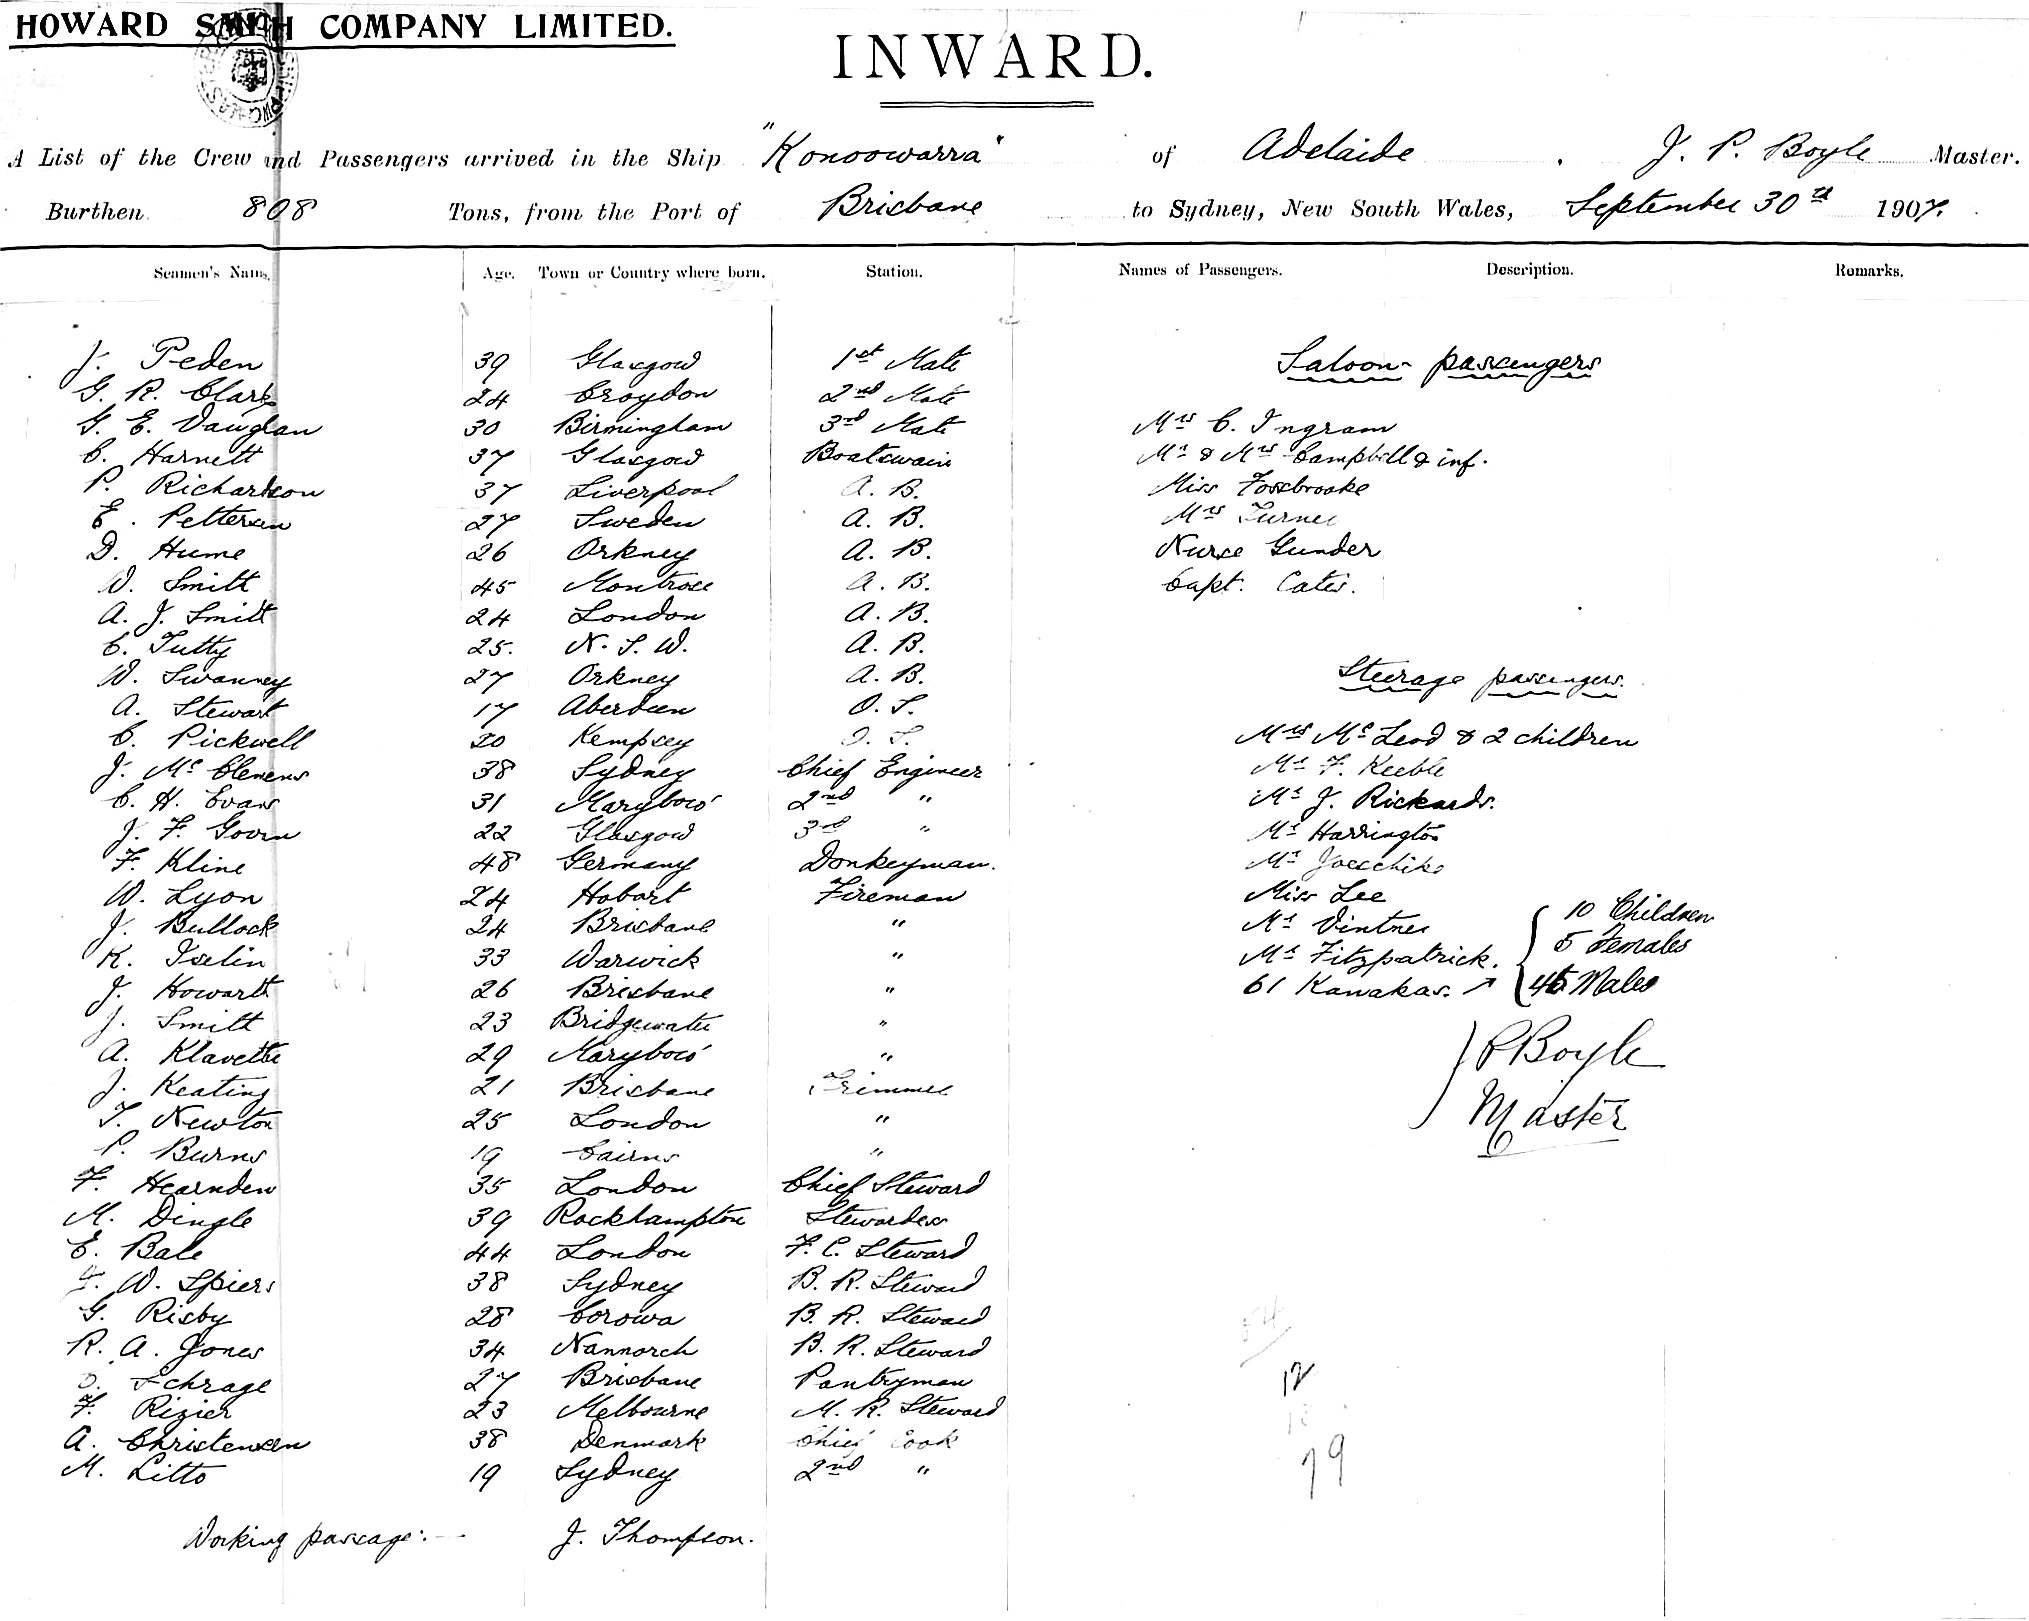 HOWARD SMITH COMPANY LIMITED.
INWARD.
A List of the Crew and Passengers arrived in the Ship "Konoowarra" of Adelaide, J. P. Boyle Master.
Burthen 808 Tons, from the Port of Brisbane to Sydney, New South Wales, September 30th 1907.
Seamen's Name. Age. Town or Country where born. Station.
J. Peden 39 Glasgow 1st Mate
G. R. Clark 24 Croydon 2nd Mate
G. E. Vaughan 30 Birmingham 3rd Mate
C. Harnett 37 Glasgow Boatswain
P. Richardson 37 Liverpool A. B.
E. Pettersen 27 Sweden A. B.
D. Hume 26 Orkney A. B.
W. Smith 45 Montrose A. B.
A. J. Smith 24 London A. B.
C. Tutty 25. N. S. W. A. B.
W. Swanney 27 Orkney A. B.
A. Stewart 17 Aberdeen O. S.
C. Pickwell 20 Kempsey O. S.
J. Mc Clenens 38 Sydney Chief Engineer
C. H. Evans 31 Maryboro' 2nd "
J. F. Govan 22 Glasgow 3rd "
F. Kline 48 Germany Donkeyman.
W. Lyon 24 Hobart Fireman
J. Bullock 24 Brisbane "
K. Iselin 33 Warwick "
J. Howarth 26 Brisbane "
J. Smith 23 Bridgewater "
A. Klavette 29 Maryboro' "
J. Keating 21 Brisbane Trimmer
T. Newton 25 London "
P. Burns 19 Cairns "
F. Hearnden 35 London Chief Steward
M. Dingle 39 Rockhampton Stewardess
E. Bale 44 London F. C. Steward
W. Spiers 38 Sydney B. R. Steward
G. Risby 28 Corowa B. R. Steward
R. A. Jones 34 Nannorch B. R. Steward
Schrage 27 Brisbane Pantryman
F. Rizier 23 Melbourne M. R. Steward
A. Christensen 38 Denmark Chief Cook
M. Litto 19 Sydney 2nd "
Working passage:- J. Thompson.
Names of Passengers. Description. Remarks.
Saloon passengers
Mrs C. Ingram
Mr & Mrs Campbell & inf.
Miss Fossbrooke
Mrs Turner
Nurse Gunder
Capt. Cates.
Steerage passengers.
Mrs Mc Leod & 2 children
Mr F. Keeble
Mr J. Rickards.
Mr Harrington
Mr
Miss Lee
Mr Vintner
Mr Fitzpatrick.
61 Kanakas.
10 Children
5 Females
46 Males
J P Boyle
Master
12
79